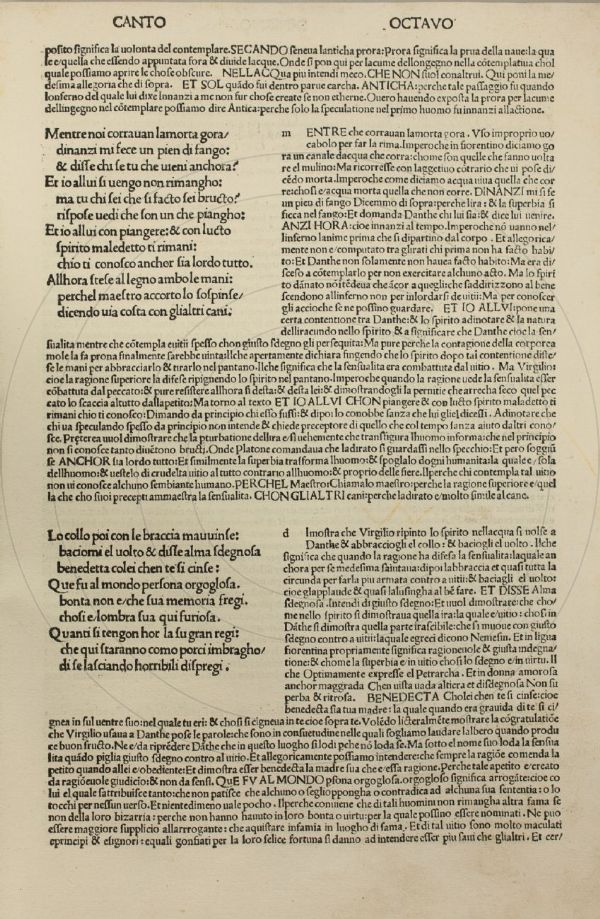 CANTO OCTAVO
posito significa la uolonta del contemplare. SECANDO seneua lanticha prora: Prora significa la prua della naue: la qua
le e/quella che essendo appuntata fora & diuide lacque. Onde si pon qui per lacume dellongegno nella cōtemplatiua chol
quale possiamo aprire le chose obscure. NELLACQua piu intendi meco. CHE NON suol conaltrui. Qui poni la me/
desima allegoria che di sopra. ET SOL quādo fui dentro parue carcha. ANTICHA: perche tale passaggio fu quando
lonferno del quale lui dixe Innanzi a me non fur chose create se non etherne. Ouero hauendo exposta la prora per lacume
dellingegno nel cōtemplare possiamo dire Antica: perche solo la speculatione nel primo huomo fu innanzi allactione.
Mentre noi corrauan lamorta gora/
dinanzi mi fece un pien di fango:
& disse chi se tu che uieni anchora?
Et io allui si uengo non rimangho:
ma tu chi sei che si facto sei bructo?
rispose uedi che son un che piangho:
Et io allui con piangere: & con lucto
spirito maledetto ti rimani:
chio ti conosco anchor sia lordo tutto.
Allhora stese al legno ambole mani:
perchel maestro accorto lo sospinse/
dicendo uia costa con glialtri cani.
m ENTRE che corrauan lamorta gora. Vso improprio uo/
cabolo per far la rima. Imperoche in fiorentino diciamo go
ra un canale dacqua che corra: chome son quelle che fanno uolta
re el mulino: Ma ricorresse con laggetiuo cōtrario che ui pose di/
cēdo morta. Imperoche come diciamo acqua uiua quella che cor
re: chosi e/acqua morta quella che non corre. DINANZI mi si fe
un pieu di fango Dicemmo di sopra: perche lira: & la superbia si
ficca nel fango: Et domanda Danthe chi lui sia: & dice lui uenire.
ANZI HORA: cioe innanzi al tempo. Imperoche nō uanno nel/
linferno lanime prima che si dipartino dal corpo. Et allegorica/
mente non e/computato tra glirati chi prima non ha facto habi/
to: Et Danthe non solamente non hauea facto habito: Ma era di/
sceso a cōtemplarlo per non exercitare alchuno acto. Ma lo spiri/
to dānato
scendono allinferno non per inlordarsi de uitii: Ma per conoscer
gli accioche se ne possino guardare. ET IO ALLVI: pone una
certa contentione tra Danthe: & lo spirito adinotare & la natura
delliracundo nello spirito, & a significare che Dante cioe la sen/
sualita mentre che cōtempla euitii spesso chon giusto sdegno gli persequita: Ma pure perche la contagione della corporea
mole la fa prona finalmente sarebbe uinta: Ilche apertamente dichiara fingendo che lo spirito dopo tal contentione distē/
se le mani per abbracciarlo & tirarlo nel pantano. Ilche significa che la sensualita era combattuta dal uitio. Ma Virgilio:
cioe la ragione superiore la difese ripignendo lo spirito nel pantano. Imperoche quando la ragione uede la sensualita esser
cōbattuta dal peccato: & pure resistere allhora si desta: & desta lei: & dimostrando gli la pernitie che arrecha seco quel pec
cato lo scaccia altutto dallapetito: Ma torno al texto ET IO ALLVI CHON piangere & con lucto spirito maladetto ti
rimani chio ti conosco: Dimando da principio chi esso fussi: & dipoi lo conobbe sanza che lui gliel dicessi. Adinotare che
chi ua speculando spesso da principio non intende & chiede preceptore di quello che col tempo sanza aiuto daltri cono/
sce. Preterea uuol dimostrare che la pturbatione dellira e/si uehemente che transfigura lhuomo informa: che nel principio
non si conosce tanto diuētono bructi. Onde Platone comandaua che ladirato si guardassi nello specchio: Et pero soggiū
se ANCHOR sia lordo tutto: Et similmente la superbia trasforma lhuomo: & spoglalo dogni humanita: la quale e/sola
dellhuomo: & uestelo di crudelta uitio al tutto contrario allhuomo: & proprio delle fiere. Ilperche chi contempla tal uitio
non ui conosce alchuno sembiante humano. PERCHEL Maestro: Chiamalo maestro: perche la ragione superiore e/quel
la che cho suoi precepti ammaestra la sensualita. CHON GLIALTRI cani: perche ladirato e/molto simile al cane.
Lo collo poi con le braccia mauuinse:
baciomi el uolto & disse alma sdegnosa
benedetta colei chen te si cinse:
Que fu al mondo persona orgoglosa.
bonta non e/che sua memoria fregi.
chosi e/lombra sua qui furiosa.
Quanti si tengon hor la su gran regi:
che qui staranno como porci imbragho/
di se lasciando horribili dispregi.
d Imostra che Virgilio ripinto lo spirito nellacqua si uolse a
Danthe & abbracciogli el collo: & baciogli el uolto. Ilche
significa che quando la ragione ha difesa la sensualita: laquale an
chora per se medesima saitaua: dipoi labbraccia et quasi tutta la
circunda per farla piu armata contro a uitii: & baciagli el uolto:
cioe glapplaude & quasi lalusingha al bē fare. ET DISSE Alma
sdegnosa. Intendi di giusto sdegno: Et uuol dimostrare: che cho/
me nello spirito si dimostraua quella ira la quale e/uitio: chosi in
Dāthe si dimostra quella parte irascibile: che si muoue con giusto
sdegno contro a uitii: laquale egreci dicono Nemesin. Et in ligua
fiorentina propriamente significa ragioneuole & giusta indegna/
tione: & chome la superbia e/in uitio chosi lo sdegno e/in uirtu. Il
che Optimamente expresse el Petrarcha. Et in donna amorosa
anchor maggrada Chen uista uada altiera et disdegnosa Non su
perba & ritrosa. BENEDECTA Cholei chen te si cinse: cioe
benedecta sia tua madre: la quale quando era grauida di te si ci/
gnea in sul uentre suo: nel quale tu eri: & chosi si cigneua in te cioe sopra te. Volēdo litteralmēte mostrare la cōgratulatiōe
che Virgilio usaua a Danthe pose le parole: che sono in consuetudine nelle quali sogliamo laudare lalbero quando produ
ce buon fructo. Ne e/da riprēdere Dāthe che in questo luogho si lodi pehe nō loda se. Ma sotto el nome suo loda la sensua
lita quādo piglia giusto sdegno contro al uitio. Et allegoricamente possiamo intendere: che sempre la ragiōe comenda la
petito quando allei e/obediente: Et dimostra esser benedecta la madre sua che e/essa ragione. Perche tale apetito e/creato
da ragioneuole giudicio: & non da sensi. QVE FV AL MONDO psona orgoglosa. orgogloso significa arrogāte: cioe co
lui el quale sattribuisce tanto: che non patisce che alchuno o seglioppongha o contradica ad alchuna sua sententia: o lo
tocchi per nessun uerso. Et nientedimeno uale pocho. Ilperche conuiene che di tali huomini non rimangha altra fama se
non della loro bizarria: perche non hanno hauuto in loro bonta o uirtu: per la quale possino essere nominati. Ne puo
essere maggiore supplicio allarrrogante: che aquistare infamia in luogho di fama. Et di tal uitio sono molto maculati
eprincipi & esignori: equali gonfiati per la loro felice fortuna si danno ad intendere esser piu saui che glialtri. Et cer/